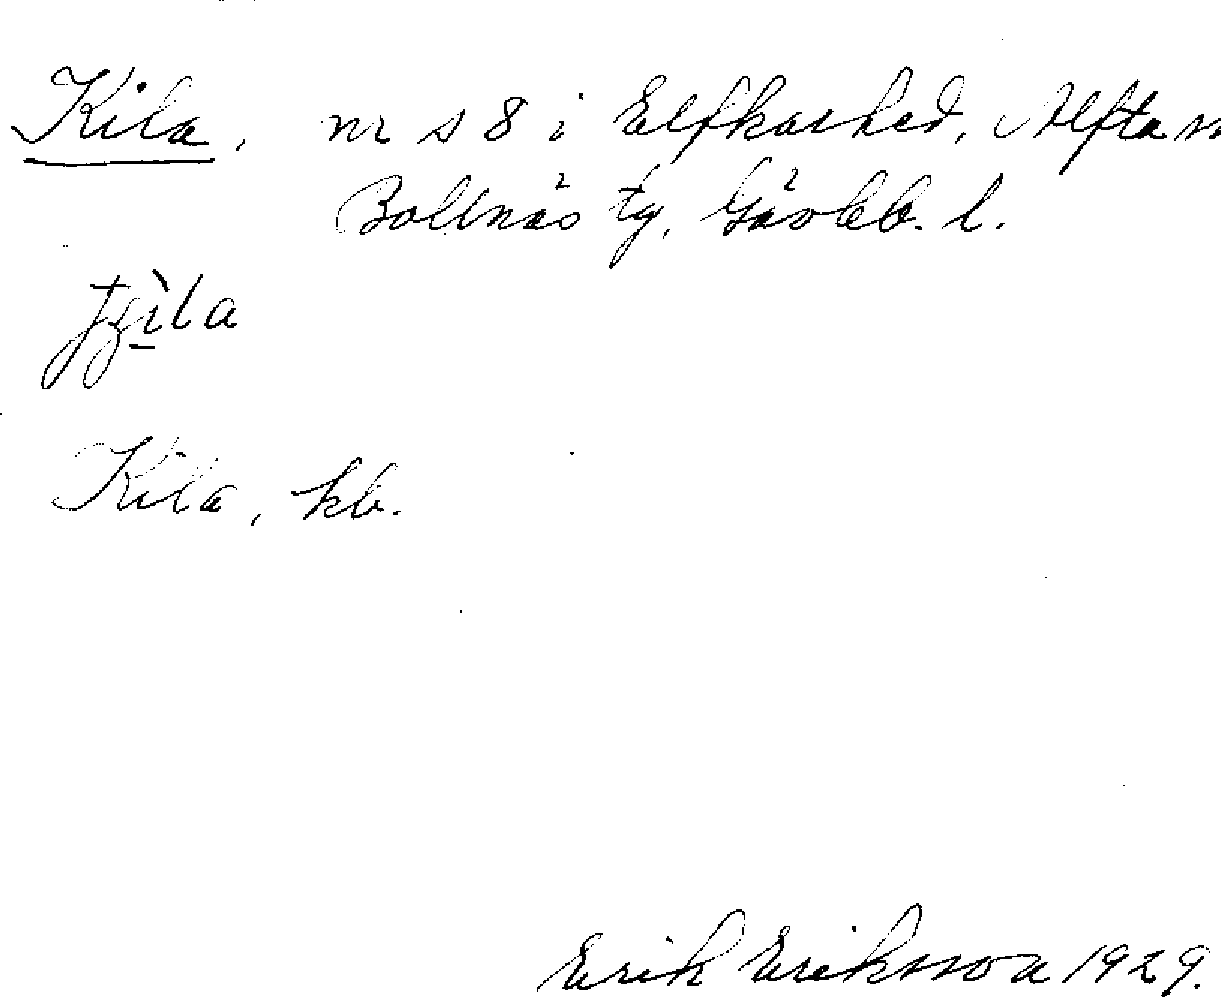 Kila, nr s 8 i Elfkarhed, Alfta
Bollnäs tg, Gävleb. l.
Kila, kb.
Erik Eriksson 1929.